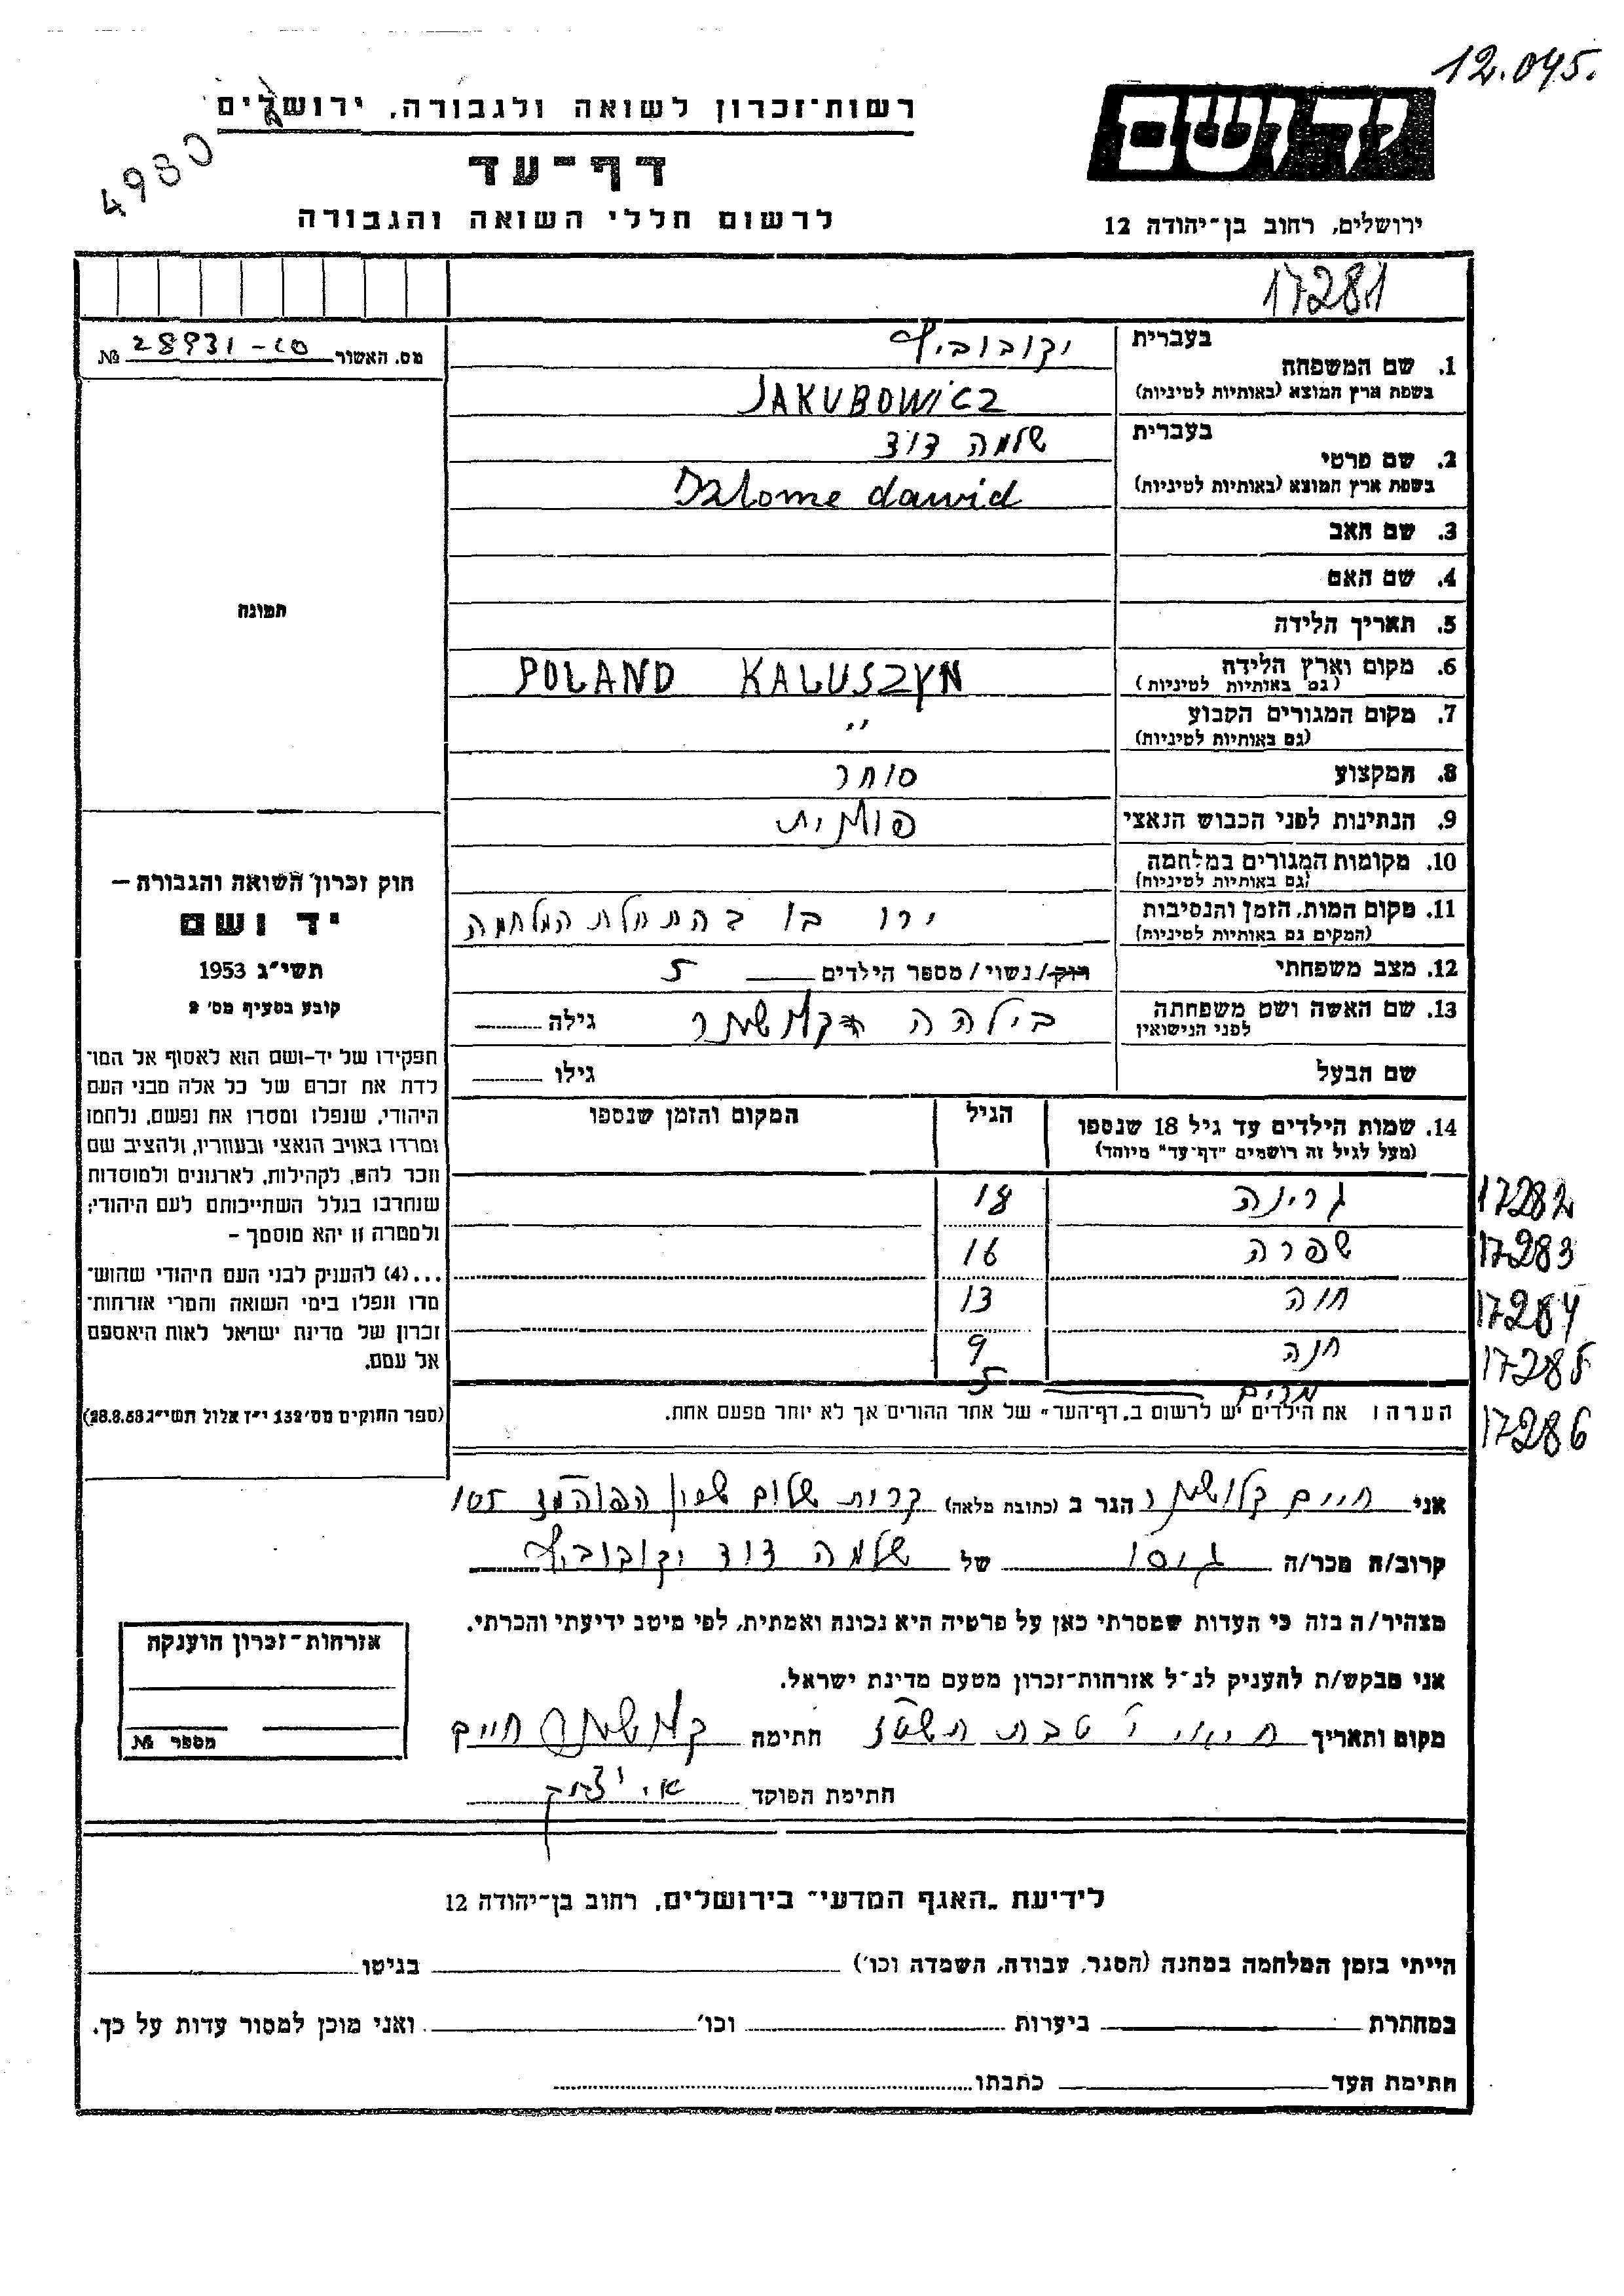 12.045.
יד ושם
רשות־זכרון לשואה ולגבורה, ירושלים
4980
דף־עד
לרשום חללי השואה והגבורה
ירושלים, רחוב בן־יהודה 12
17281
מס. האשור 28931-10 №
1. שם המשפחה
בעברית יקובוביץ
בשפת ארץ המוצא (באותיות לטיניות) JAKUBOWICZ
2. שם פרטי
בעברית שלמה דוד
בשפת ארץ המוצא (באותיות לטיניות) Szlome dawid
3. שם האב
4. שם האם
5. תאריך הלידה
6. מקום וארץ הלידה POLAND KALUSZYN
(גם באותיות לטיניות)
7. מקום המגורים הקבוע "
(גם באותיות לטיניות)
8. המקצוע סוחר
9. הנתינות לפני הכבוש הנאצי פולנית
10. מקומות המגורים במלחמה
(גם באותיות לטיניות)
11. מקום המות, הזמן והנסיבות ירו בו בהתחלת המלחמה
(המקום גם באותיות לטיניות)
12. מצב משפחתי רוק/נשוי/ מספר הילדים 5
13. שם האשה ושם משפחתה בילהה גילה
לפני הנישואין
שם הבעל גילו
14. שמות הילדים עד גיל 18 שנספו הגיל המקום והזמן שנספו
(מעל לגיל זה רושמים "דף־עד" מיוחד)
גרינה 18 17282
שפרה 16 17283
חוה 13 17284
חנה 9 17285
מרים 5 17286
הערה: את הילדים יש לרשום ב„דף־העד" של אחד ההורים אך לא יותר מפעם אחת.
תמונה
חוק זכרון השואה והגבורה —
יד ושם
תשי"ג 1953
קובע בסעיף מס' 2
תפקידו של יד-ושם הוא לאסוף אל המו־
לדת את זכרם של כל אלה מבני העם
היהודי, שנפלו ומסרו את נפשם, נלחמו
ומרדו באויב הנאצי ובעוזריו, ולהציב שם
וזכר להם, לקהילות, לארגונים ולמוסדות
שנחרבו בגלל השתייכותם לעם היהודי;
ולמטרה זו יהא מוסמך —
...(4) להעניק לבני העם היהודי שהוש־
מדו ונפלו בימי השואה והמרי אזרחות־
זכרון של מדינת ישראל לאות היאספם
אל עמם.
(ספר החוקים מס' 132 י"ז אלול תשי"ג 28.8.53)
אני חיים קלושנר הגר ב (כתובת מלאה) קרית שלום 105
קרוב/ה מכר/ה גיסו של שלמה דוד יקובוביץ
מצהיר/ה בזה כי העדות שמסרתי כאן על פרטיה היא נכונה ואמתית, לפי מיטב ידיעתי והכרתי.
אני מבקש/ת להעניק לנ"ל אזרחות־זכרון מטעם מדינת ישראל.
מקום ותאריך י' טבת חתימה חיים
חתימת הפוקד
אזרחות־זכרון הוענקה
מספר №
לידיעת „האגף המדעי" בירושלים, רחוב בן־יהודה 12
הייתי בזמן המלחמה במחנה (הסגר, עבודה, השמדה וכו') בגיטו
במחתרת ביערות וכו' ואני מוכן למסור עדות על כך.
חתימת העד כתבתו